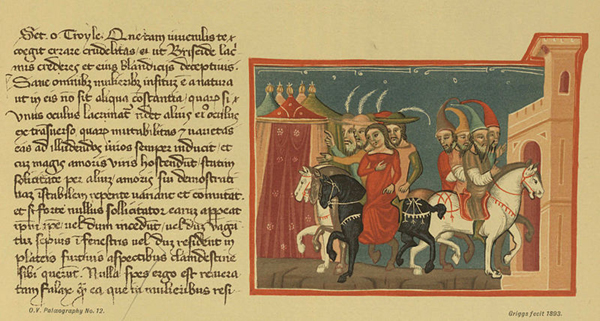 Set o Troyle. Que tam iuvenilis te
coegit errare crudelitas ut Briseide lac
mis crederes et eius blandicijs deceptiuis.
Sane omnibus mulieribus insitum e a natura
ut in eis no sit aliqua constantia quar si
unus oculus lacrimat ridet alius ex oculis
ex trasuerso quar mutabilitas et varietas
eas ad illudendos uiros semper inducit et
cu magis amoris viris hostendut statim
solicitate per aliu amoris sui demonstrati
uam istabilem repente uariant et comutat.
et si forte nullus sollicitator earum appareat
ipm ipe uel dum incedut uel du vagan
tur sepius i fenestris uel du resident in
plateis furtiuis aspectibus clandestine
sibi querut. Nulla spes ergo est reuera
tam falax qm ea que in mulieribus resi-
O.V. Palæography No. 12.
Griggs fecit 1893.